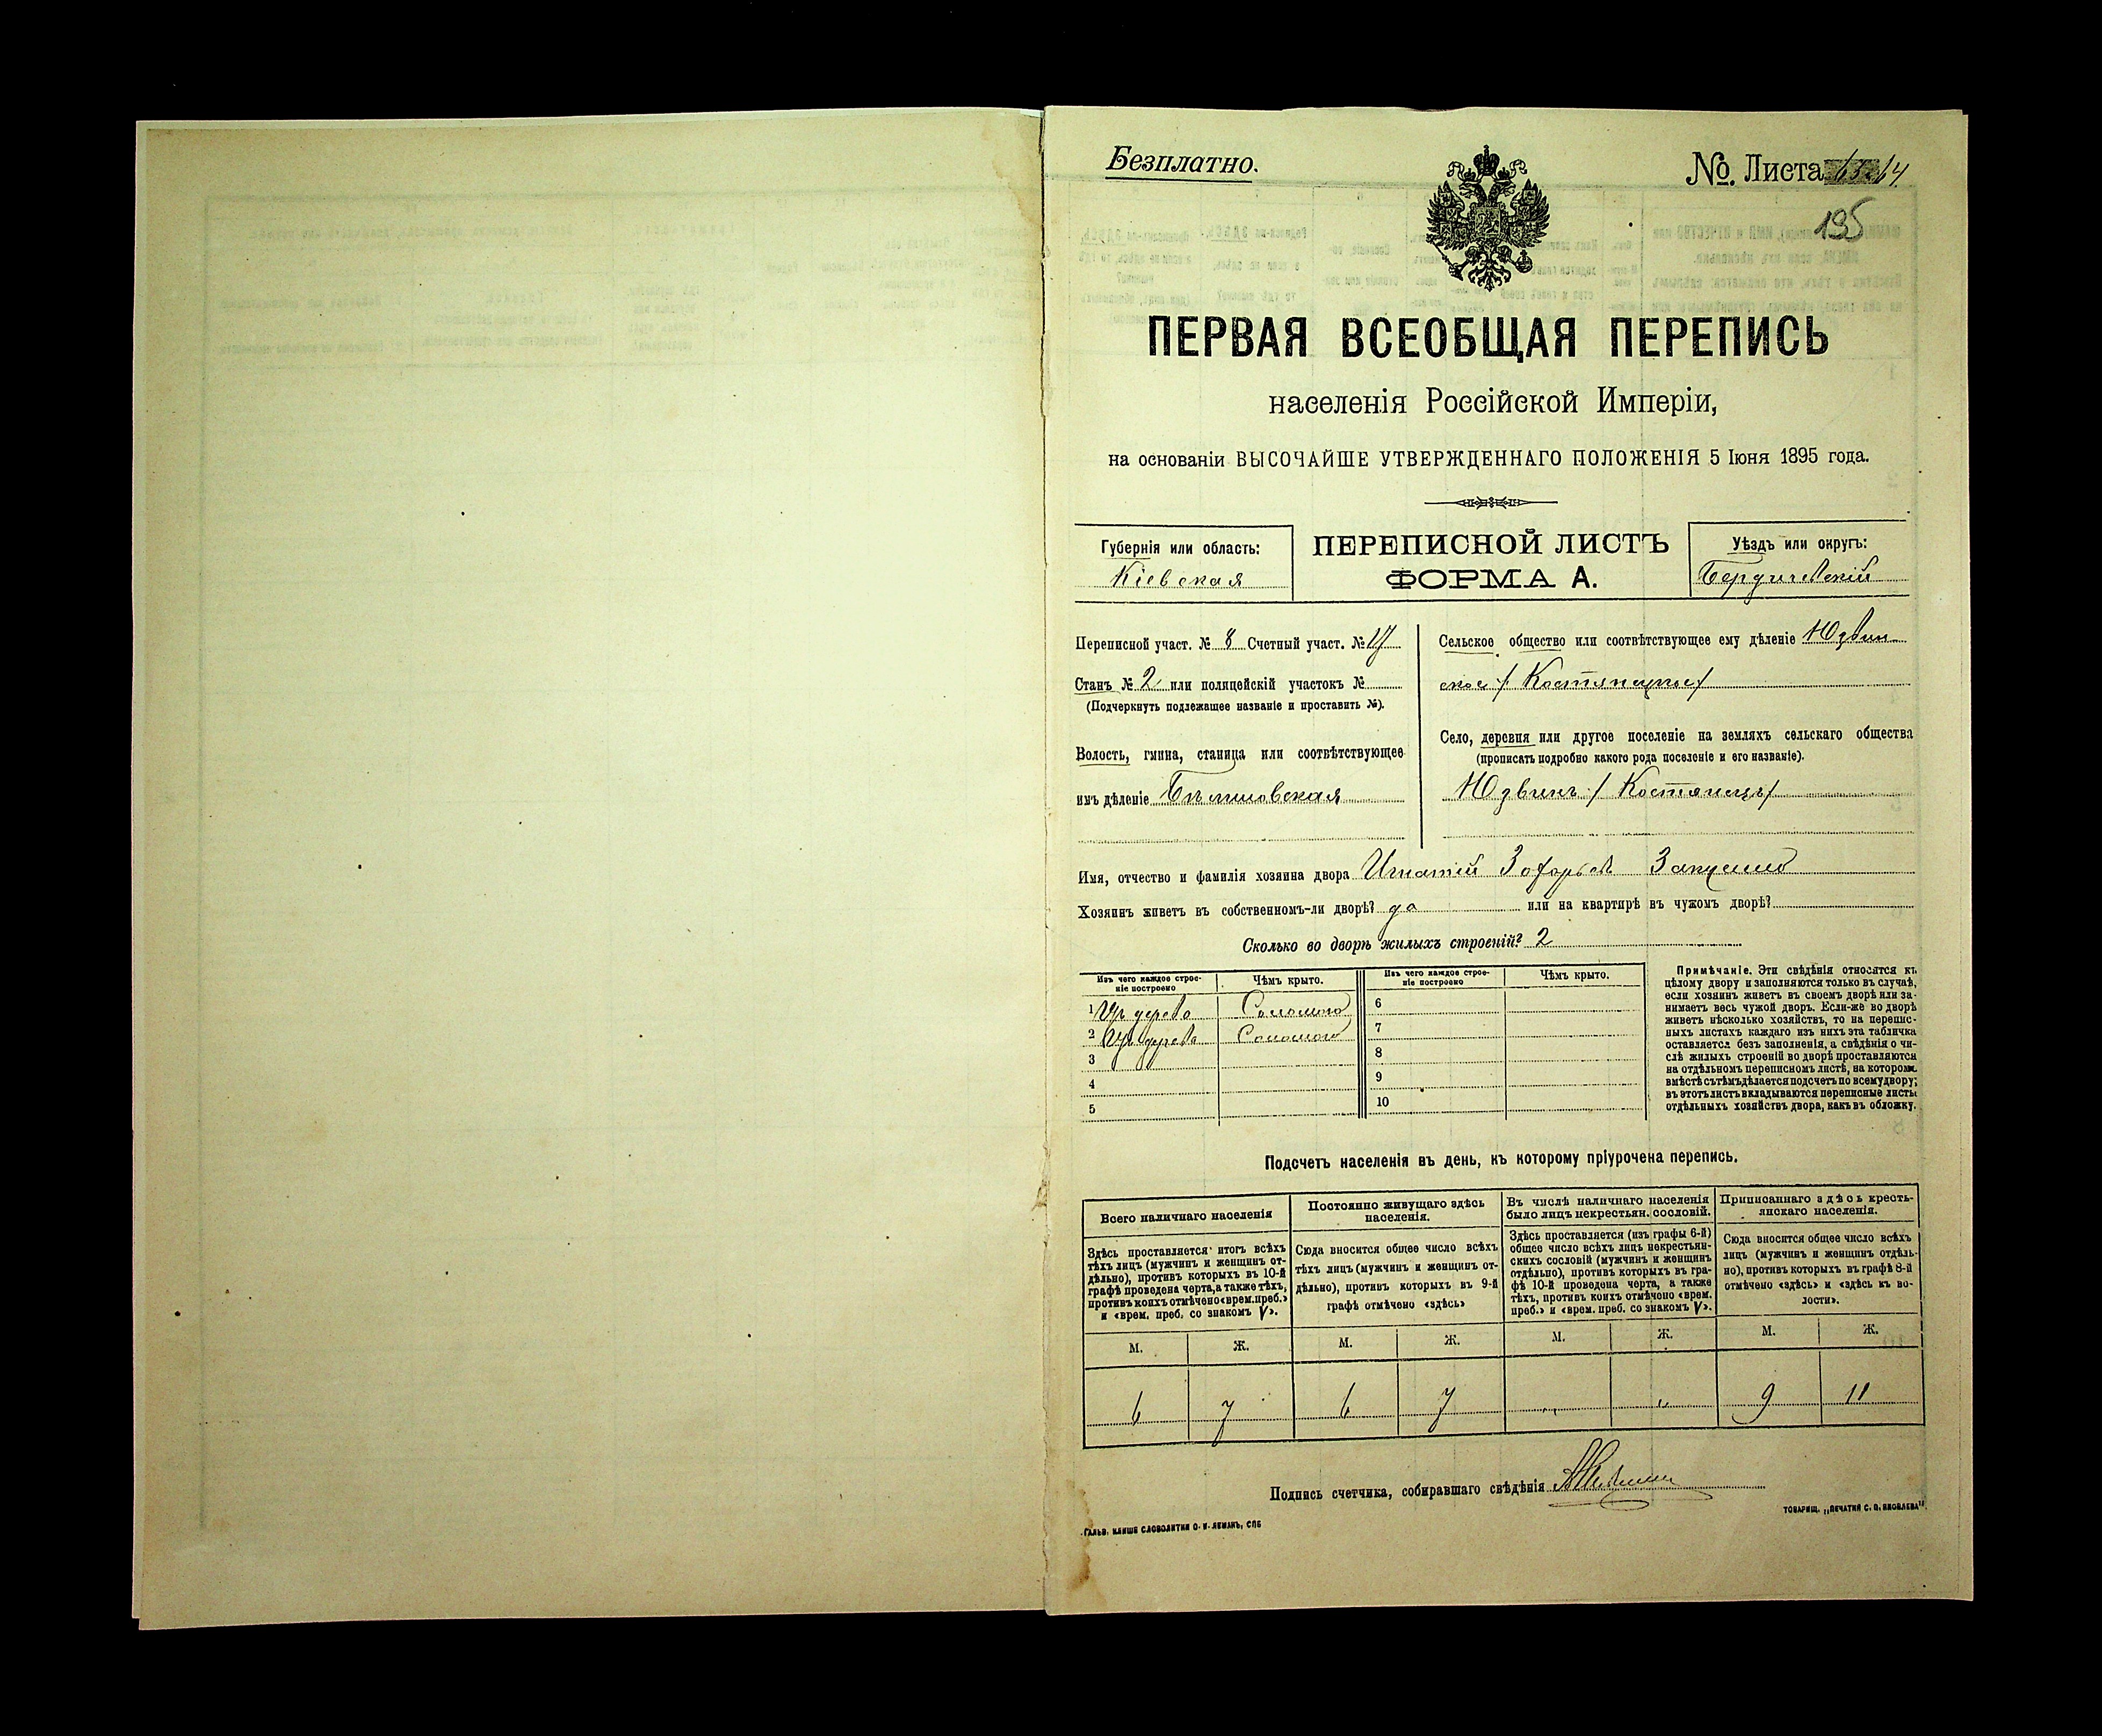 Безплатно.
№. Листа 64.
195
ПЕРВАЯ ВСЕОБЩАЯ ПЕРЕПИСЬ
населенія Россійской Имперіи,
на основаніи ВЫСОЧАЙШЕ УТВЕРЖДЕННАГО ПОЛОЖЕНІЯ 5 Іюня 1895 года.
Губернія или область:
Кіевская
ПЕРЕПИСНОЙ ЛИСТЪ
ФОРМА А.
Уѣздъ или округъ:
Бердичевскій
Переписной участ. № 8 Счетный участ. № 17
Станъ № 2 или полицейскій участокъ №
(Подчеркнуть подлежащее названіе и проставить №).
Волость, гмина, станица или соотвѣтствующее
имъ дѣленіе Бѣлиловская
Сельское общество или соотвѣтствующее ему дѣленіе Юзвин-
ское /Костянецкое/
Село, деревня или другое поселеніе на земляхъ сельскаго общества
(прописать подробно какого рода поселеніе и его названіе).
Юзвинъ /Костянецъ/
Имя, отчество и фамилія хозяина двора Игнатій
Хозяинъ живетъ въ собственномъ-ли дворѣ? да или на квартирѣ въ чужомъ дворѣ?
Сколько во дворѣ жилыхъ строеній? 2
Изъ чего каждое строе-
ніе построено
Чѣмъ крыто.
Изъ чего каждое строе-
ніе построено
Чѣмъ крыто.
1 Изъ дерева Соломою
2 Изъ дерева Соломою
3
4
5
6
7
8
9
10
Примѣчаніе. Эти свѣдѣнія относятся къ
цѣлому двору и заполняются только въ случаѣ,
если хозяинъ живетъ въ своемъ дворѣ или за-
нимаетъ весь чужой дворъ. Если-же во дворѣ
живетъ нѣсколько хозяйствъ, то на перепис-
ныхъ листахъ каждаго изъ нихъ эта табличка
оставляется безъ заполненія, а свѣдѣнія о чи-
слѣ жилыхъ строеній во дворѣ проставляются
на отдѣльномъ переписномъ листѣ, на которомъ
вмѣстѣ съ тѣмъ дѣлается подсчетъ по всему двору;
въ этотъ листъ вкладываются переписные листы
отдѣльныхъ хозяйствъ двора, какъ въ обложку.
Подсчетъ населенія въ день, къ которому пріурочена перепись.
Всего наличнаго населенія
Здѣсь проставляется итогъ всѣхъ
тѣхъ лицъ (мужчинъ и женщинъ от-
дѣльно), противъ которыхъ въ 10-й
графѣ проведена черта, а также тѣхъ,
противъ коихъ отмѣчено «врем. преб.»
и «врем. преб. со знакомъ V».
Постоянно живущаго здѣсь
населенія.
Сюда вносится общее число всѣхъ
тѣхъ лицъ (мужчинъ и женщинъ от-
дѣльно), противъ которыхъ въ 9-й
графѣ отмѣчено «здѣсь»
Въ числѣ наличнаго населенія
было лицъ некрестьян. сословій.
Здѣсь проставляется (изъ графы 6-й)
общее число всѣхъ лицъ некрестьян-
скихъ сословій (мужчинъ и женщинъ
отдѣльно), противъ которыхъ въ гра-
фѣ 10-й проведена черта, а также
тѣхъ, противъ коихъ отмѣчено «врем.
преб.» и «врем. преб. со знакомъ V».
Приписаннаго здѣсь кресть-
янскаго населенія.
Сюда вносится общее число всѣхъ
лицъ (мужчинъ и женщинъ отдѣль-
но), противъ которыхъ въ графѣ 8-й
отмѣчено «здѣсь» и «здѣсь къ во-
лости».
М. Ж. М. Ж. М. Ж. М. Ж.
6 7 6 7 „ „ 9 11
Подпись счетчика, собиравшаго свѣдѣнія
ГАЛЬВ. КЛИШЕ СЛОВОЛИТНИ О. И. ЛЕМАНЪ, СПБ
ТОВАРИЩ. „ПЕЧАТНЯ С. П. ЯКОВЛЕВА".